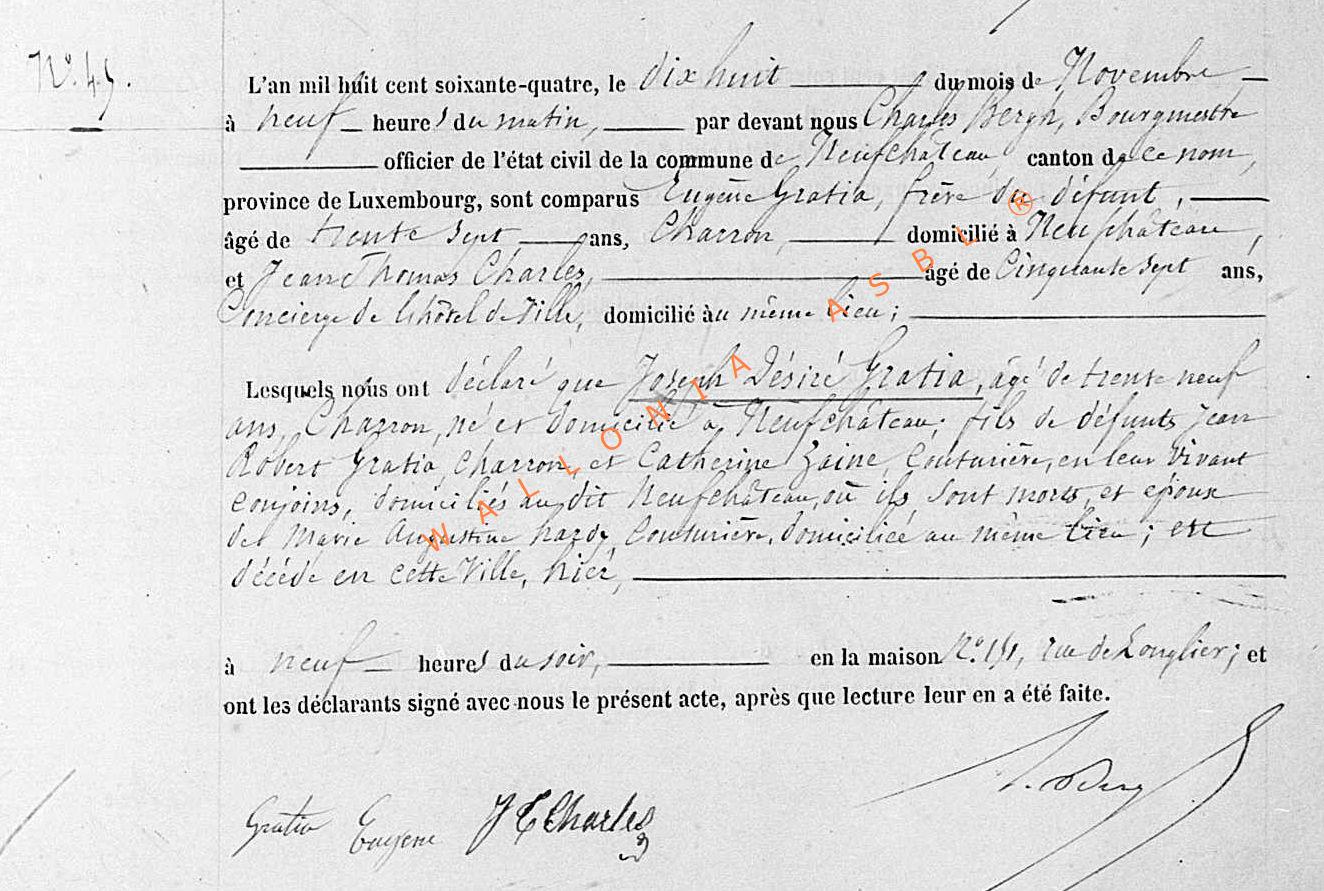 N.º 45.
L'an mil huit cent soixante-quatre, le dix huit du mois de Novembre
à neuf heures du matin, par devant nous Charles Bergh, Bourgmestre
officier de l'état civil de la commune de Neufchâteau, canton de ce nom,
province de Luxembourg, sont comparus Eugène Gratia, frère du défunt,
âgé de trente sept ans, Charron, domicilié à Neufchâteau,
et Jean Thomas Charles, âgé de Cinquante sept ans,
Concierge de l'hôtel de Ville, domicilié au même lieu;
Lesquels nous ont déclaré que Joseph Désiré Gratia, âgé de trente neuf
ans, Charron, né et domicilié à Neufchâteau; fils de défunts Jean
Robert Gratia, Charron, et Catherine Zaine, Couturière, en leur vivant
conjoins, domiciliés au dit Neufchâteau, où ils sont morts, et époux
de Marie Augustine hardy, Couturière, domiciliée au même lieu; est
décédé en cette Ville, hier,
à neuf heures du soir, en la maison N.º rue de Longlier; et
ont les déclarants signé avec nous le présent acte, après que lecture leur en a été faite.
Gratia Eugene J T Charles
WALLONIA ASBL ®